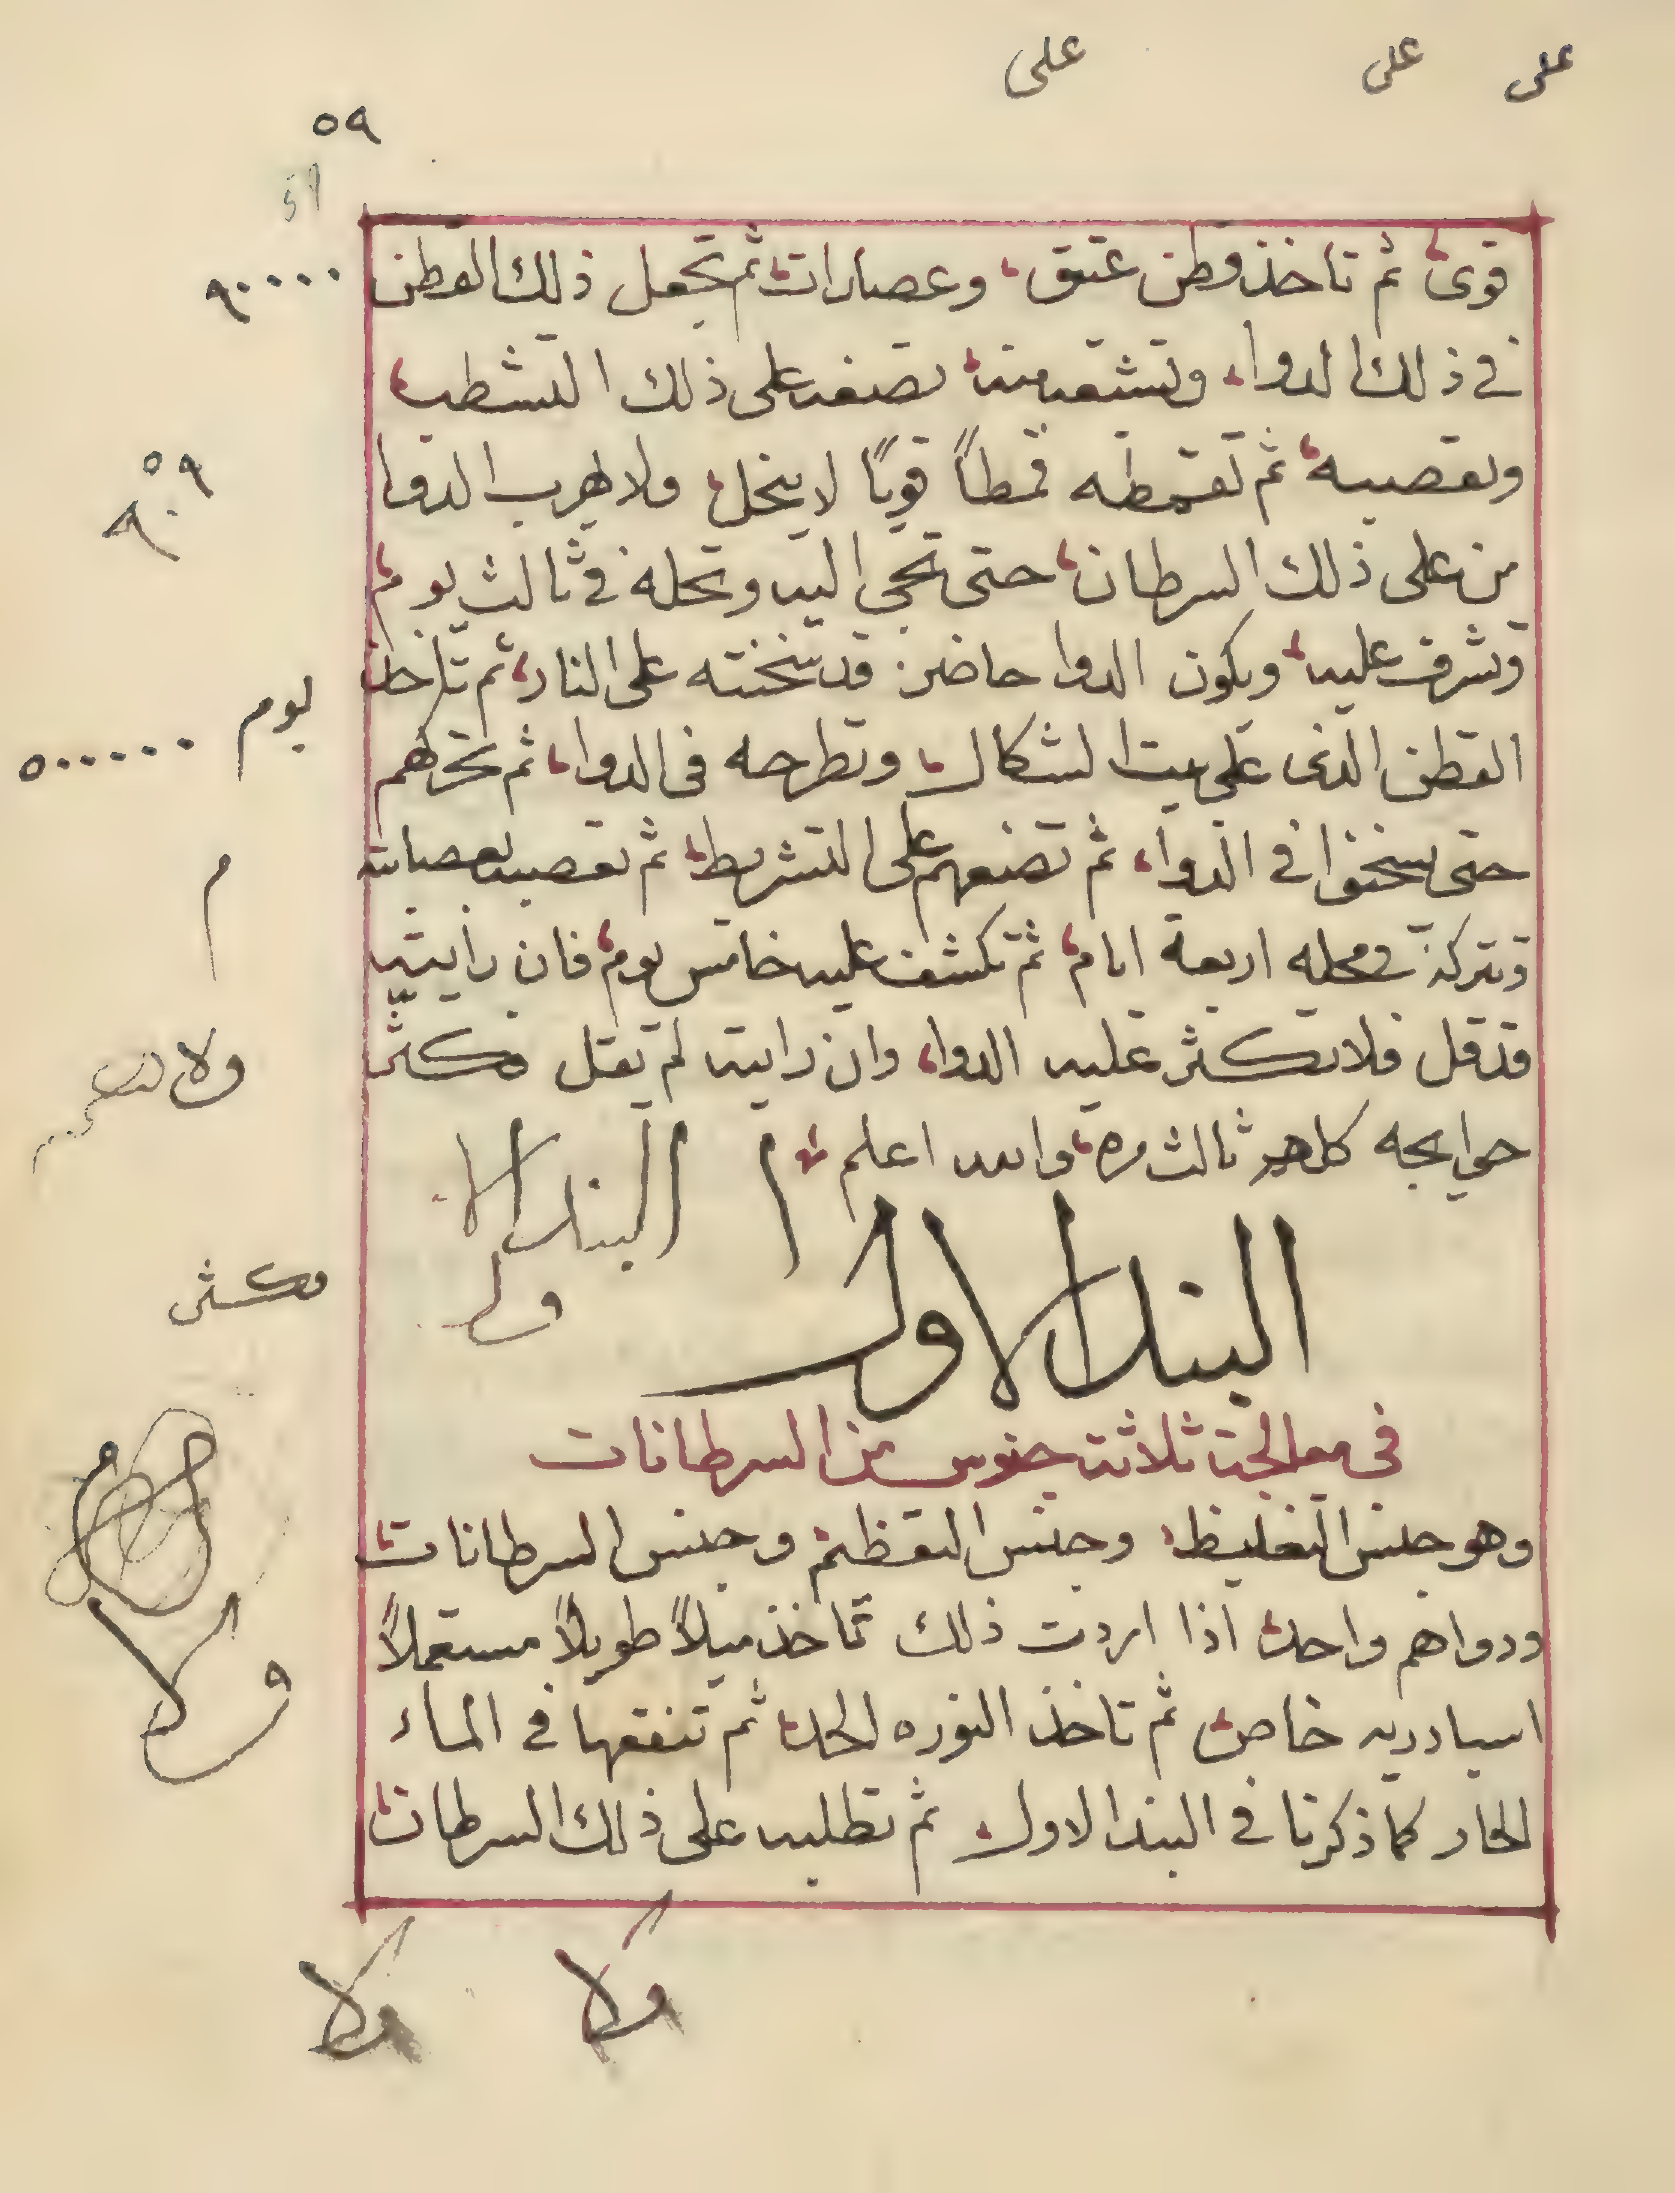 على على على
٥٩
59
قوى ثم تاخذ قطن عتيق وعصارات ثم تجعل ذلك القطن
٩٠٠٠٠
في ذلك الدوا وتشقه منه تضعه على ذلك التشطب
وتعصبه ثم تقمطه قمطاً قوياً لا ينحل ولا يهرب الدوا
٥٩
٩٠
من على ذلك السرطان حتى تجي اليه وتحله في ثالث يوم
وتشرف عليه ويكون الدوا حاضر قد سخنته على النار ثم تاخذ
يوم ٥٠٠٠٠٠٠
القطن الذى على الشكال وتطرحه فى الدوا ثم تحركهم
حتى يسخنوا في الدوا ثم تضعهم على التشريط ثم تعصبه بعصابته
م
وتتركه في محله اربعة ايام ثم تكشف عليه خامس يوم فان رايته
قد قل فلا تكثر عليه الدوا وان رايته لم يقل فكثر
ولا
حوايجه كلهم ثالث مره والله اعلم
ا البند الا
ول
البند الاول
فكثر
فى معالجة ثلاثة جنوس من السرطانات
وهو جنس الغليظ وجنس العظم وجنس السرطانات
ودواهم واحد اذا اردت ذلك تاخذ ميلاً طويلاً مستعملاً
ولا
اسبادريه خاص ثم تاخذ النوره الحد ثم تنقعها في الماء
الحار كما ذكرنا في البند الاول ثم تطليه على ذلك السرطان
ولا ولا